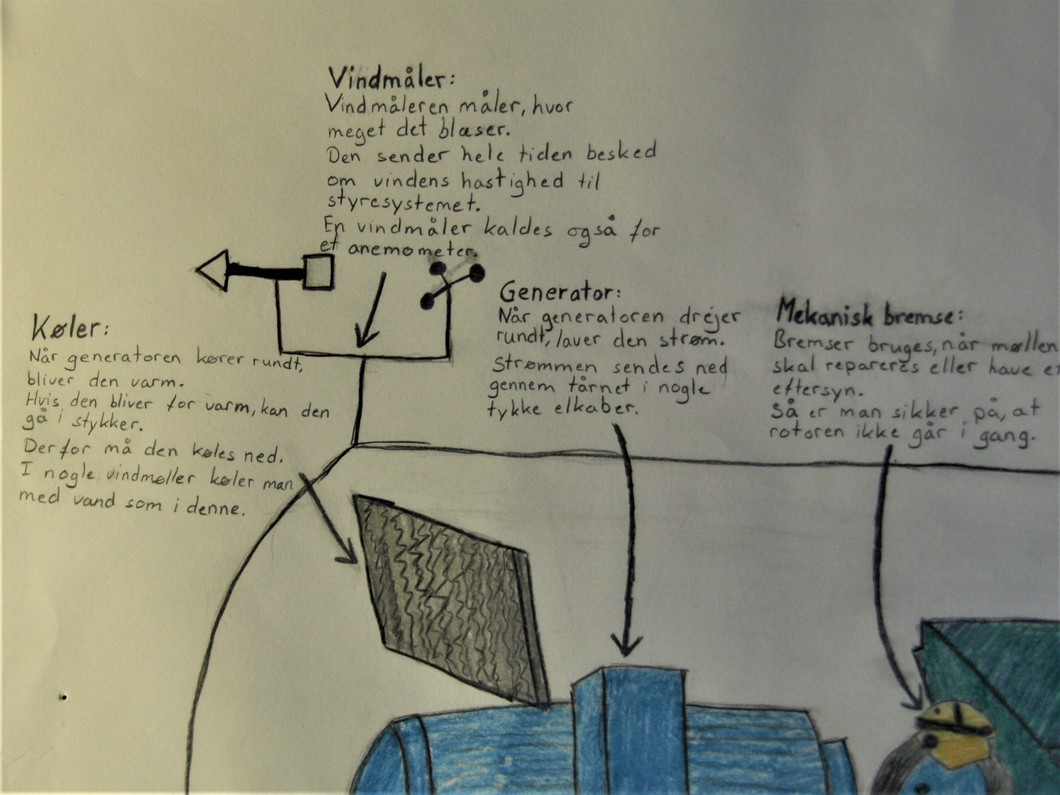 Vindmåler:
Vindmåleren måler, hvor
meget det blæser.
Den sender hele tiden besked
om vindens hastighed til
styresystemet.
En vindmåler kaldes også for
et anemometer.
Køler:
Når generatoren kører rundt,
bliver den varm.
Hvis den bliver for varm, kan den
gå i stykker.
Derfor må den køles ned.
I nogle vindmøller køler man
med vand som i denne.
Generator:
Når generatoren drejer
rundt, laver den strøm.
Strømmen sendes ned
gennem tårnet i nogle
tykke elkaber.
Mekanisk bremse:
Bremser bruges, når møllen
skal repareres eller have et
eftersyn.
Så er man sikker på, at
rotoren ikke går i gang.